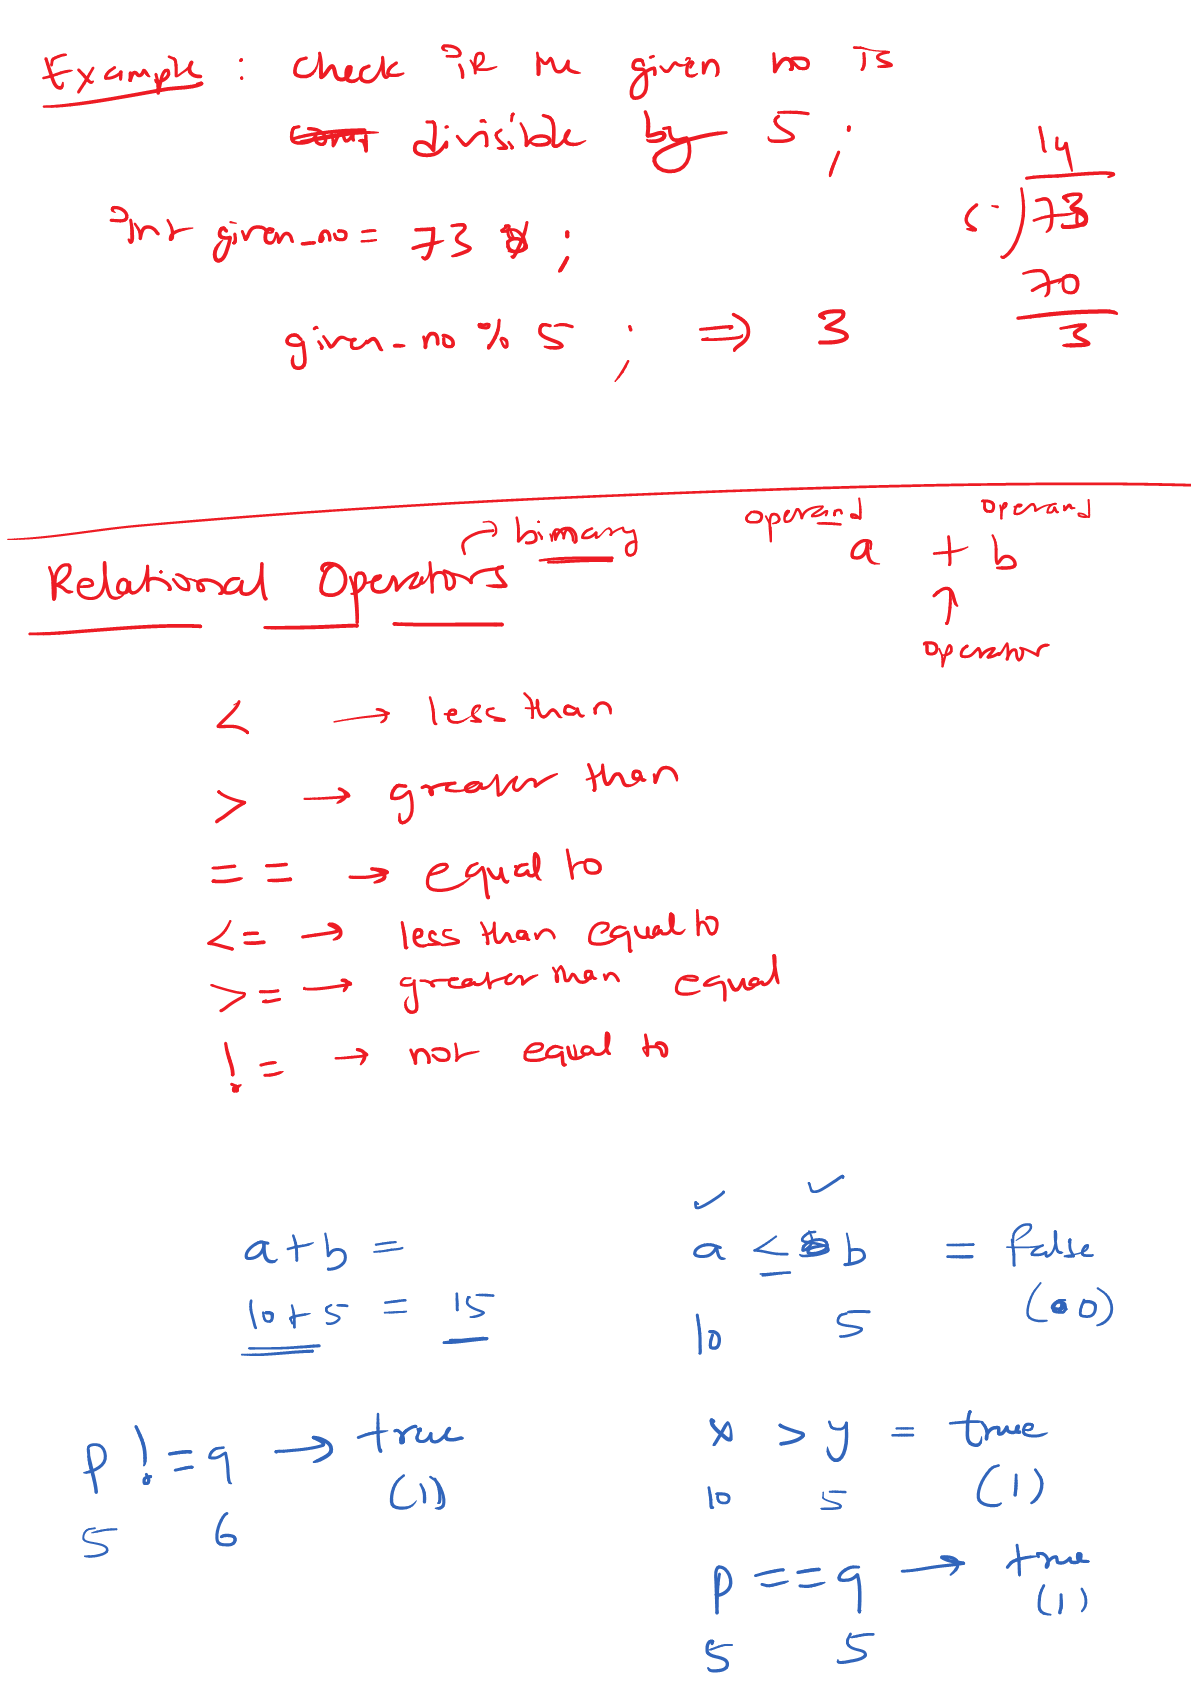 Example : check if the given no is
divisible by 5 ;
int given_no = 73 ;
14
5 ) 73
70
3
given_no % 5 ; ⇒ 3
Relational Operators → binary
operand operand
a + b
↑
operator
< → less than
> → greater than
== → equal to
<= → less than equal to
>= → greater than equal
!= → not equal to
✓ ✓
a + b =
10 + 5 = 15
a < b = false
10 5 (0)
p != q → true
5 6 (1)
x > y = true
10 5 (1)
p == q → true
5 5 (1)